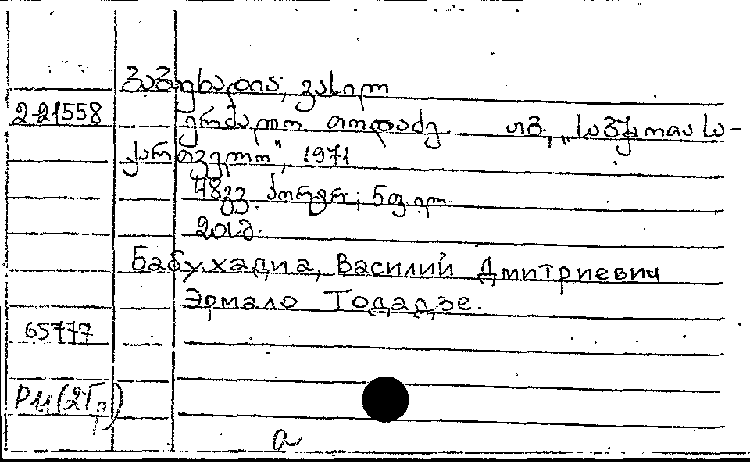 ბაბუხადია, ვასილ
2-21558 ერმალო თოდაძე თბ., „საბჭოთა სა-
ქართველო", 1971
48გვ. პორტრ.; 5ფ.ილ.
20კ.
Бабухадиа, Василий Дмитриевич
Эрмало Тодадзе.
65777
а